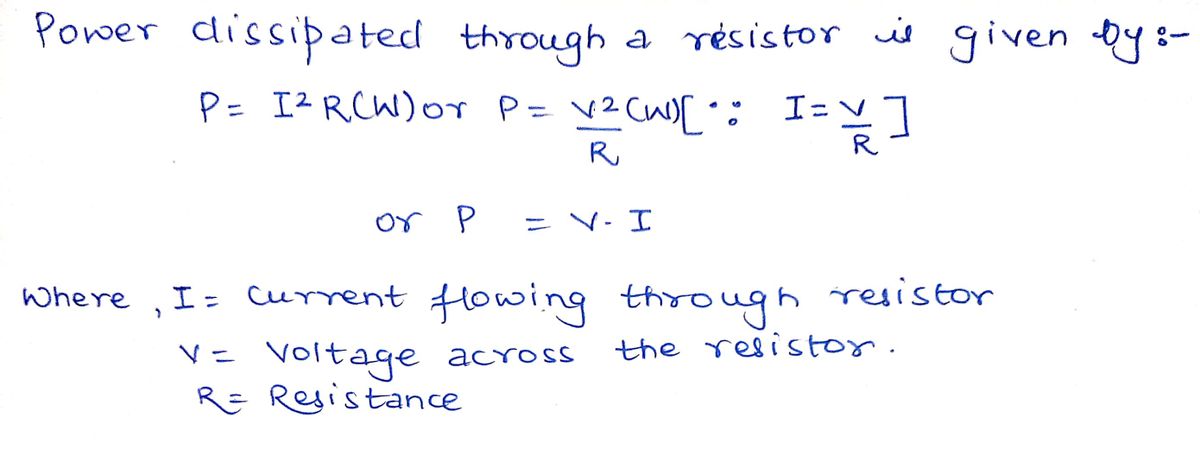 Power dissipated through a resistor is given by :-
P = I² R (W) or P = V²/R (W) [∵ I = V/R]
or P = V. I
Where , I = Current flowing through resistor
V = Voltage across the resistor .
R = Resistance